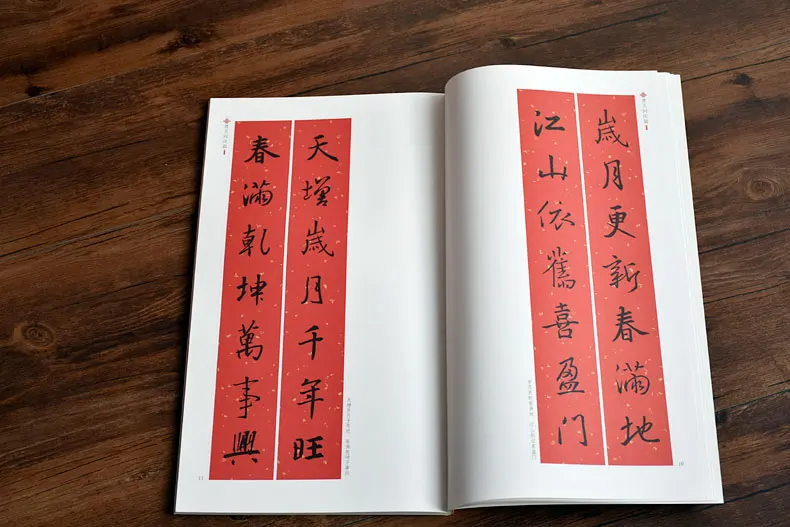 歲月更新春滿地
江山依舊喜盈门
10
天增歲月千年旺
春滿乾坤萬事興
11